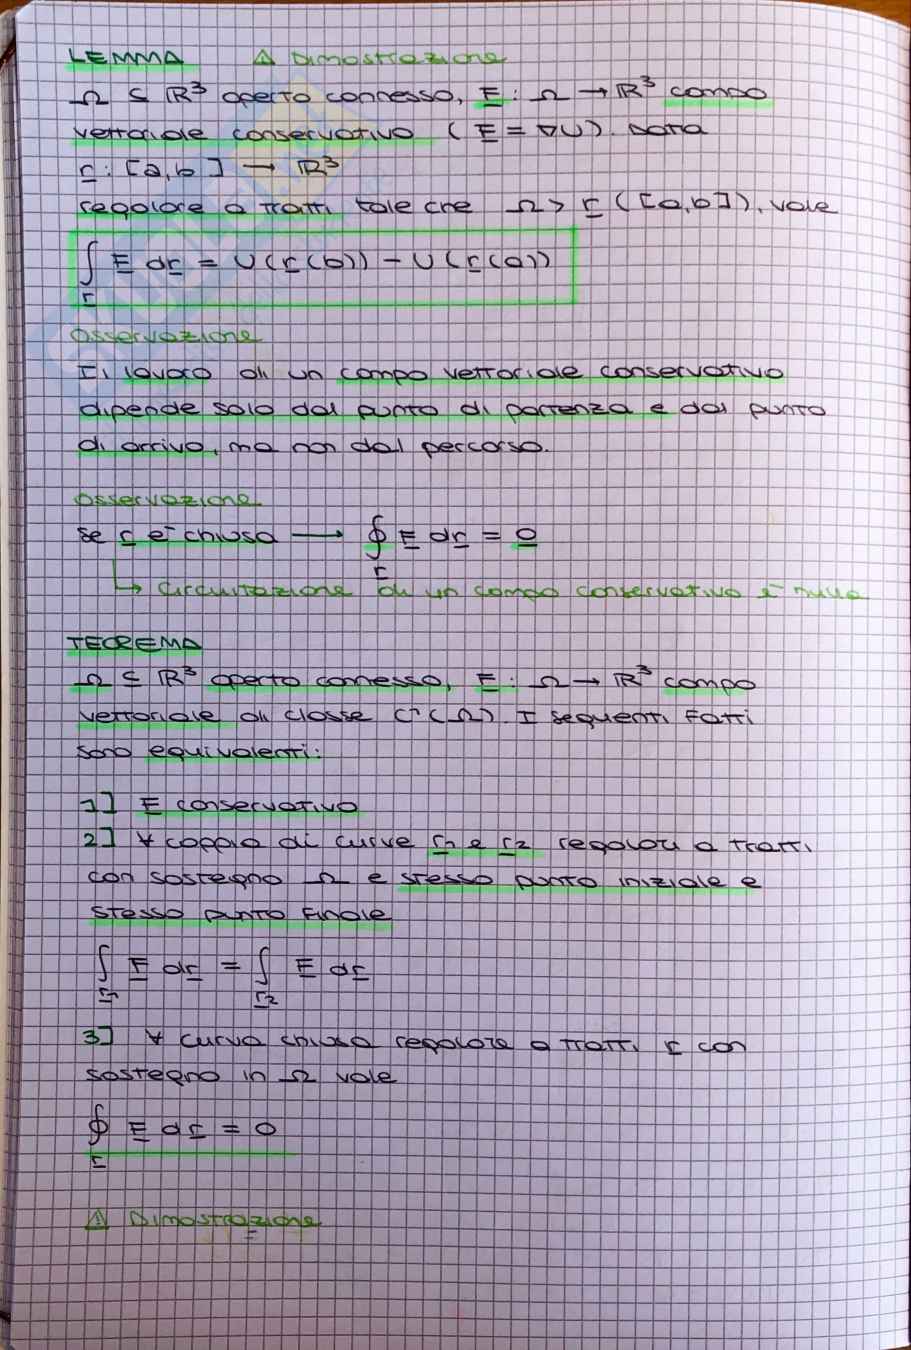 LEMMA ⚠ Dimostrazione
Ω ⊆ ℝ³ aperto connesso, F : Ω → ℝ³ campo
vettoriale conservativo ( F = ∇U ). Data
r : [a,b] → ℝ³
regolare a tratti tale che Ω > r ([a,b]), vale
∫_r F dr = U(r(b)) - U(r(a))
Osservazione
Il lavoro di un campo vettoriale conservativo
dipende solo dal punto di partenza e dal punto
di arrivo, ma non dal percorso.
Osservazione
Se r è chiusa → ∮_r F dr = 0
↳ Circuitazione di un campo conservativo è nulla
TEOREMA
Ω ⊆ ℝ³ aperto connesso, F : Ω → ℝ³ campo
vettoriale di classe C¹(Ω). I seguenti fatti
sono equivalenti:
1] F conservativo
2] ∀ coppia di curve r1 e r2 regolari a tratti
con sostegno Ω e stesso punto iniziale e
stesso punto finale
∫_r1 F dr = ∫_r2 F dr
3] ∀ curva chiusa regolare a tratti r con
sostegno in Ω vale
∮_r F dr = 0
⚠ Dimostrazione